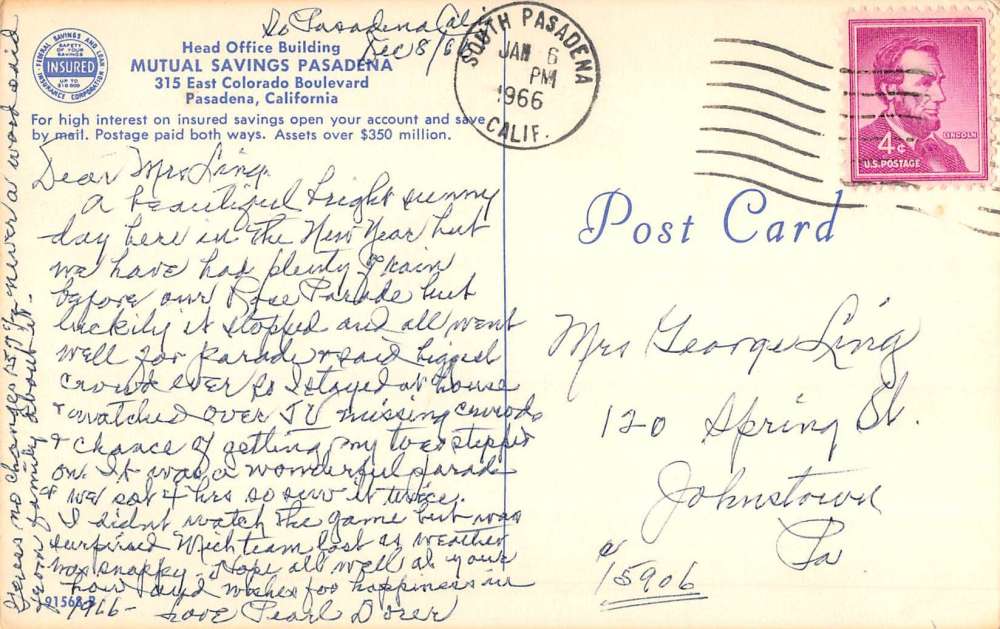 So Pasadena Calif
Dec 8/66
FEDERAL SAVINGS AND LOAN INSURANCE CORPORATION
SAFETY
OF YOUR
SAVINGS
INSURED
UP TO
$10 000
Head Office Building
MUTUAL SAVINGS PASADENA
315 East Colorado Boulevard
Pasadena, California
For high interest on insured savings open your account and save
by mail. Postage paid both ways. Assets over $350 million.
SOUTH PASADENA
JAN 6
PM
1966
CALIF.
LINCOLN
4¢
U.S. POSTAGE
Post Card
Dear Mrs Ling.
A beautiful bright sunny
day here in the New Year but
we have had plenty of rain
before our Rose Parade but
luckily it stopped and all went
well for parade & said biggest
crowd ever so I stayed at house
& watched over TV missing crowds
& chance of getting my toes stepped
on. It was a wonderful parade
& we sat 4 hrs so saw it twice.
I didnt watch the game but was
surprised Mich team lost as weather
was snappy. Hope all well at your
house and wishes for happiness in
1966 - Love Pearl Dorer
91568
no changes never a word said
from family about it.
Mrs George Ling
120 Spring St.
Johnstown
Pa
15906